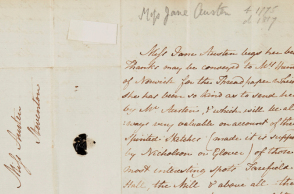 Miss Jane Austen
Miss Jane Austen begs her be
Thanks may be conveyed to Mrs
of Norwich for the Thread paper which
she has been so kind as to send he
by Mr Austen, & which will be al
always very valuable on account of the
Spirited Sketches (made it is suppo
by Nicholson or Glover) of those
most interesting spots Tarefield
Hall, the Mill & above all the
Miss Austen